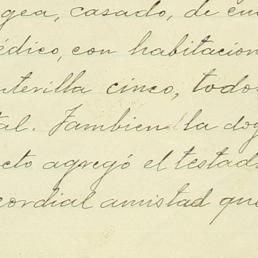 gea, casado, de cu
édico, con habitacion
nterilla cinco, todo
tal. Tambien la do
cto agregó el testad
cordial amistad que